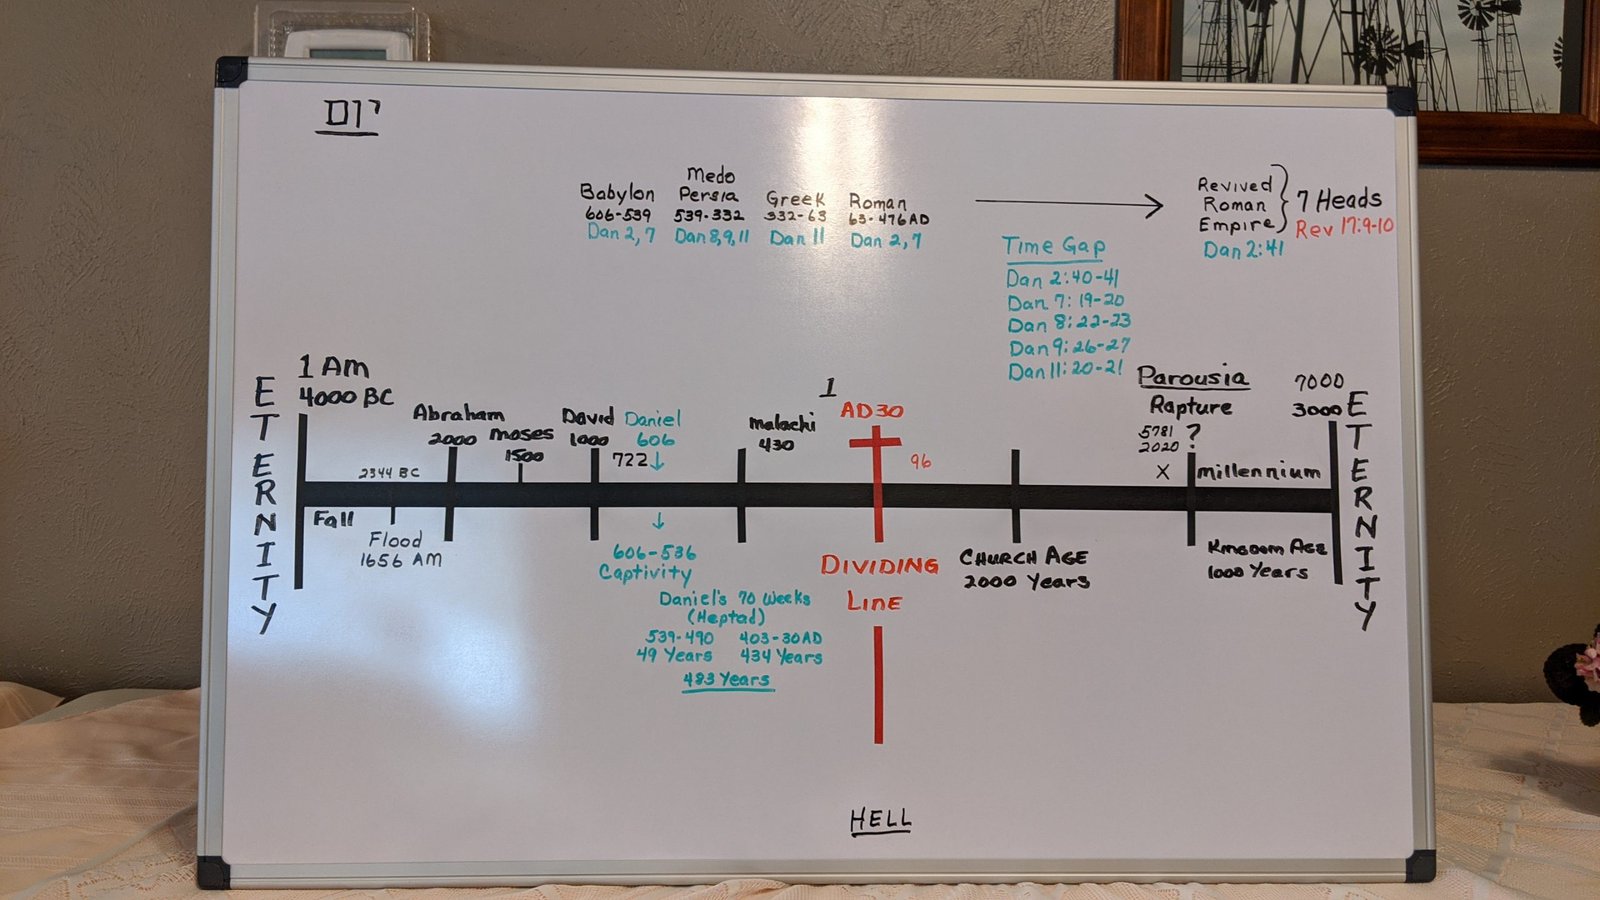 יום
Babylon
606-539
Dan 2,7
Medo
Persia
539-332
Dan 8,9,11
Greek
332-63
Dan 11
Roman
63-476AD
Dan 2,7
Revived
Roman
Empire
Dan 2:41
7 Heads
Rev 17:9-10
Time Gap
Dan 2:40-41
Dan 7:19-20
Dan 8:22-23
Dan 9:26-27
Dan 11:20-21
ETERNITY
1 Am
4000 BC
Fall
2344 BC
Flood
1656 AM
Abraham
2000
moses
1500
David
1000
722
Daniel
606
606-536
Captivity
Daniel's 70 Weeks
(Heptad)
539-490 403-30AD
49 Years 434 Years
483 Years
malachi
430
1
AD30
96
DIVIDING
LINE
HELL
CHURCH AGE
2000 Years
Parousia
Rapture
5781 ?
2020
X
millennium
KINGDOM AGE
1000 Years
7000
3000
ETERNITY